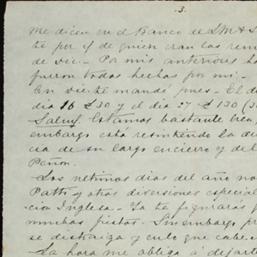 3.
me dicen en el Banco de L M & S
te por q de quien eran las rem
de dic. - Por mis anteriores ha
fueron todas hechas por mi.
En diciembre mandé pues. El d
dia 16 £30 y el dia 27 £130 (3
Salud. Estamos bastante bien,
embargo está resintiendo la du
cia de su largo encierro y del
Peñon.
Los ultimos dias del año no
Patti y otras diversiones especial
cion Inglesa. Ya te figurarás q
muchas fiestas. Sin embargo pr
se distraiga y cuto que cabe
La hora me obliga a dejarte